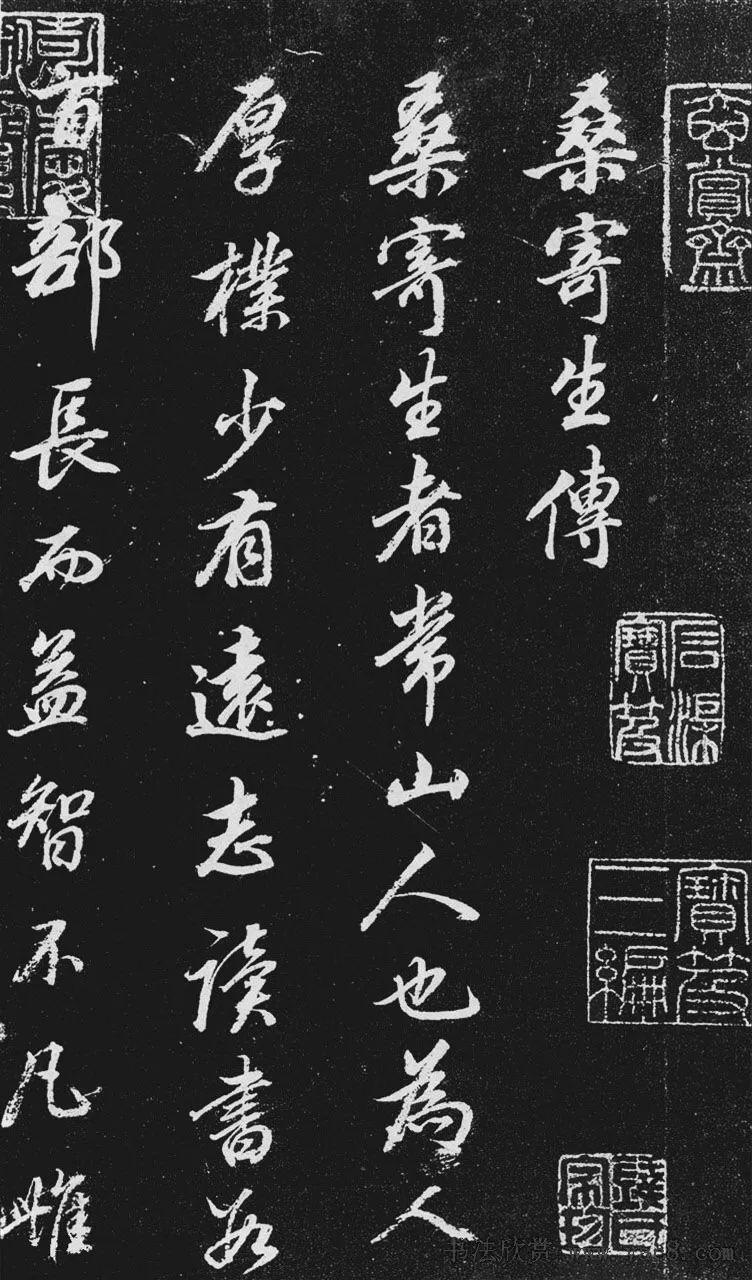 玄賞齋
桑寄生傳
石渠寶笈
寶笈三編
桑寄生者常山人也為人
厚樸少有遠志讀書數
百部長而益智不凡雌
书法欣赏